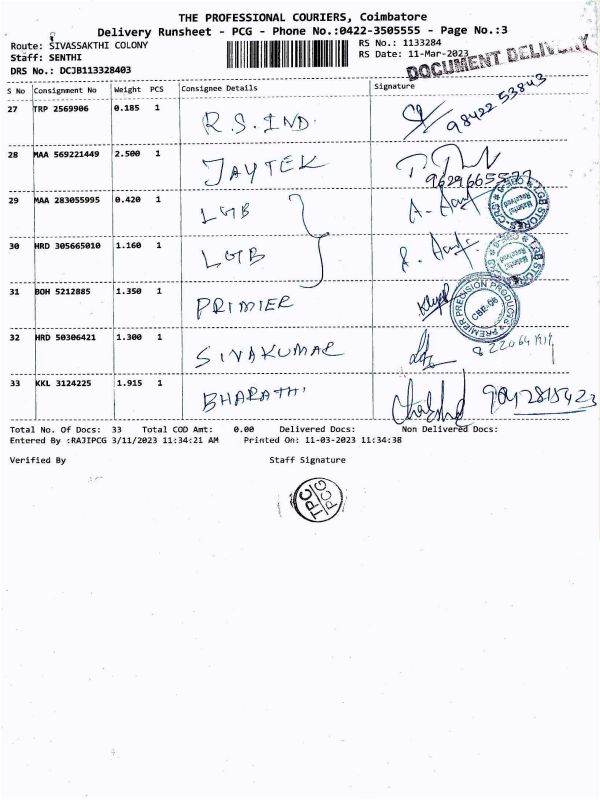 THE PROFESSIONAL COURIERS, Coimbatore
Delivery Runsheet - PCG - Phone No.:0422-3505555 - Page No.:3
Route: SIVASSAKTHI COLONY
RS No.: 1133284
Staff: SENTHI
RS Date: 11-Mar-2023
DRS No.: DCJB113328403
DOCUMENT DELIVERY
S No Consignment No Weight PCS Consignee Details Signature
27 TRP 2569906 0.185 1 R.S.IND. 98422 53843
28 MAA 569221449 2.500 1 JAYTEK 9629665577
29 MAA 283055995 0.420 1 LGB
LGB STORES-CAS Material Received
30 HRD 305665010 1.160 1 LGB
LGB STORES Material Received
31 BOH 5212885 1.350 1 PRIMIER
PREMIER PRECISION PRODUCTS CBE-06
32 HRD 50306421 1.300 1 SIVAKUMAR
33 KKL 3124225 1.915 1 BHARATHI 9042815423
Total No. Of Docs: 33 Total COD Amt: 0.00 Delivered Docs: Non Delivered Docs:
Entered By :RAJIPCG 3/11/2023 11:34:21 AM Printed On: 11-03-2023 11:34:38
Verified By Staff Signature
TPC
PCG